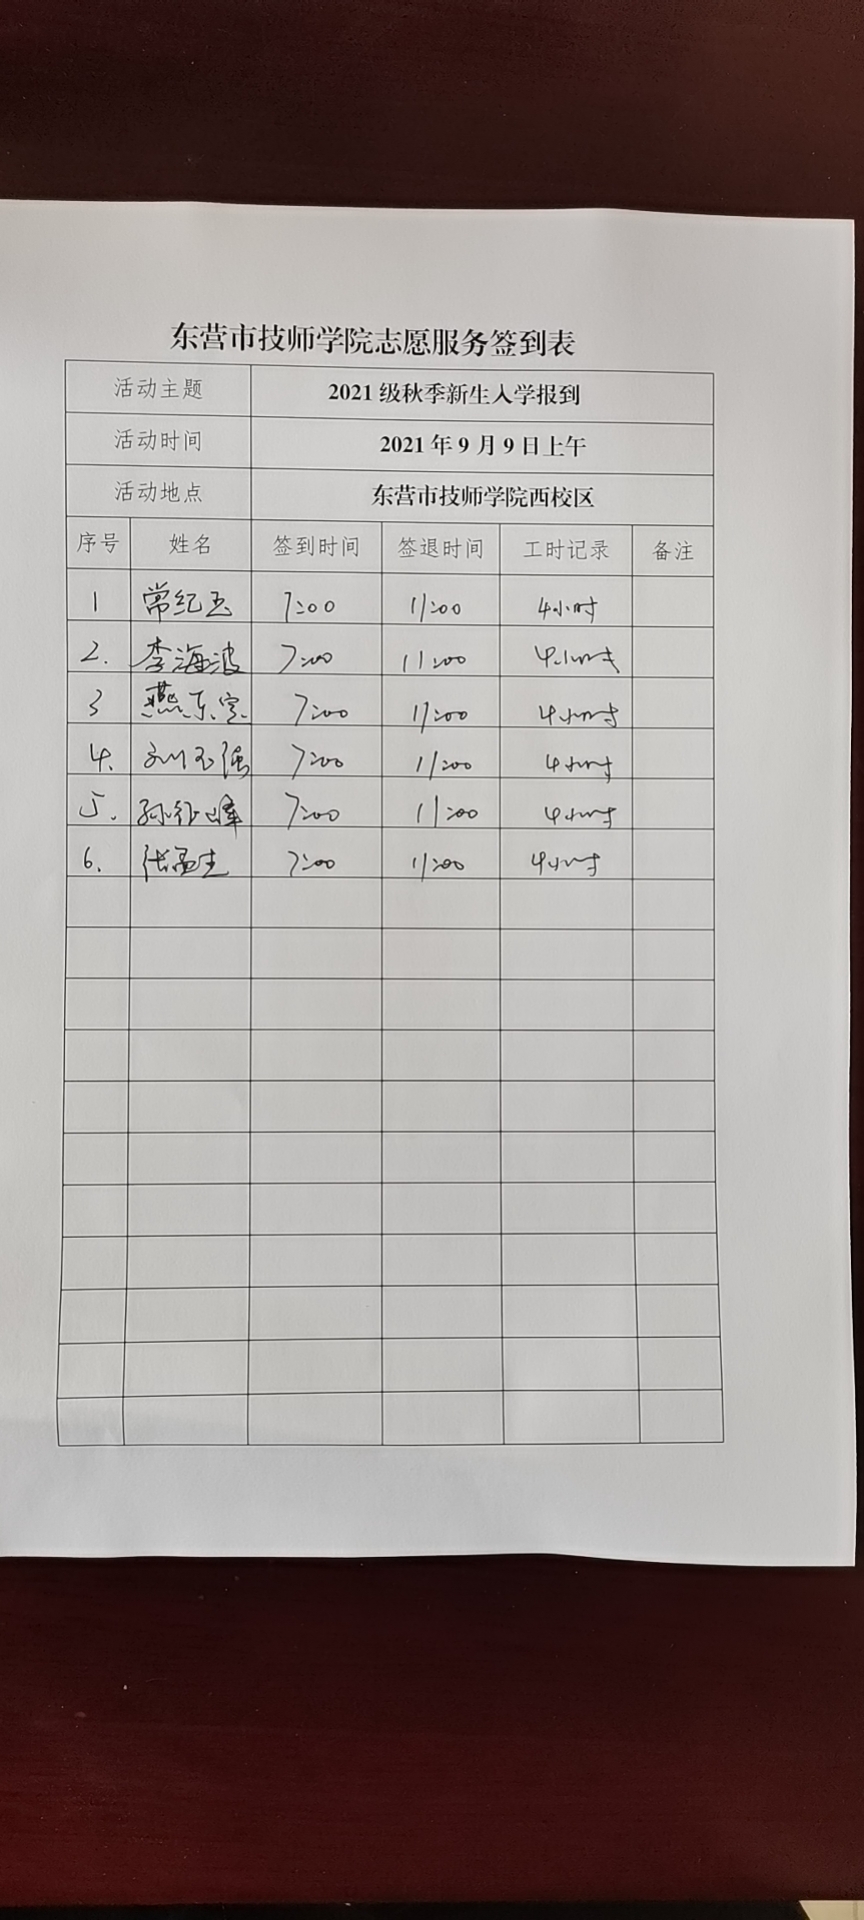 东营市技师学院志愿服务签到表
活动主题 2021 级秋季新生入学报到
活动时间 2021 年 9 月 9 日上午
活动地点 东营市技师学院西校区
序号 姓名 签到时间 签退时间 工时记录 备注
1 常纪玉 7:00 11:00 4小时
2. 李海波 7:00 11:00 4小时
3 燕东 7:00 11:00 4小时
4. 刘玉强 7:00 11:00 4小时
5. 孙征峰 7:00 11:00 4小时
6. 张孟 7:00 11:00 4小时